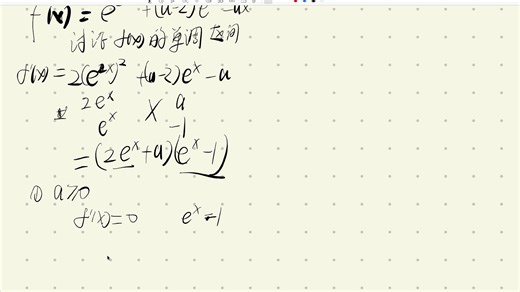 f(x) = e + (a-2)e - ax
讨论 f(x) 的单调区间
f'(x) = 2(e^x)^2 + (a-2)e^x - a
2e^x × a
e^x -1
= (2e^x + a)(e^x - 1)
① a≥0
f'(x) = 0 e^x = 1